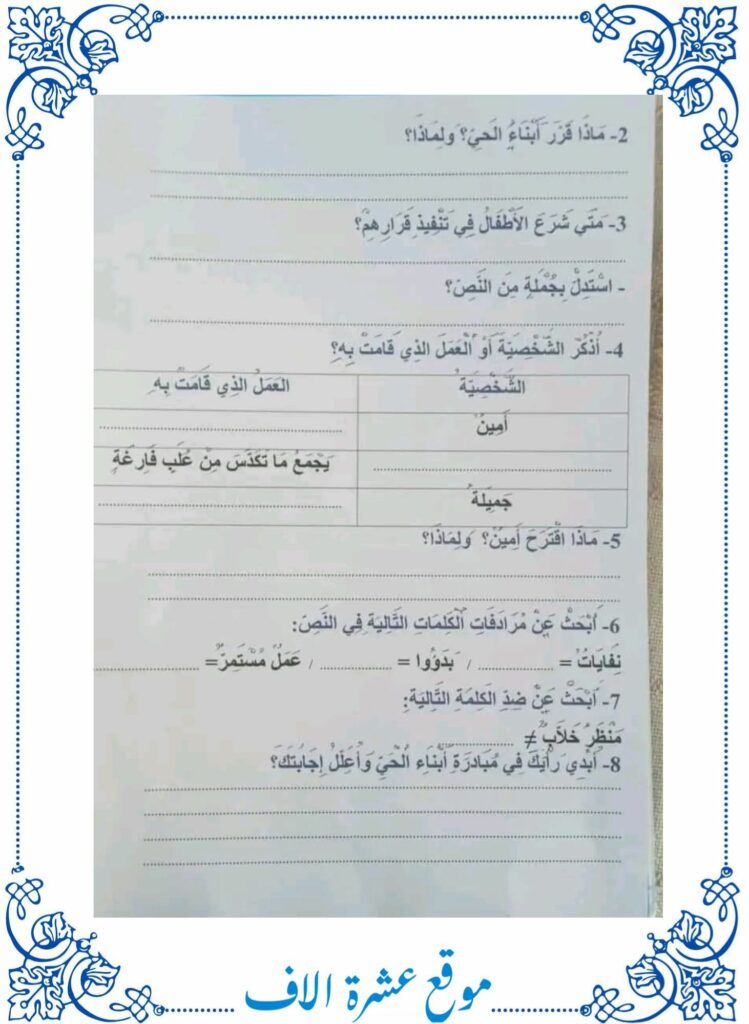 2- مَاذَا قَرَرَ أَبْنَاءُ الَحيِّ؟ وَلِمَاذَا؟
3- مَتَي شَرَعَ الأَطْفَالُ فِي تَنْفِيذِ قَرَارِهِمْ؟
- اسْتَدِلْ بِجُمْلَةٍ مِنَ النَصِّ؟
4- أُذْكُرْ الشَّخْصِيَّةَ أَوْ اْلْعَمَلَ الذِي قَامَتْ بِهِ؟
الشَّخْصِيَّةُ العَمَلُ الذِي قَامَتْ بِهِ
أَمِينٌ
يَجْمَعُ مَا تَكَدَّسَ مِنْ عُلَبٍ فَارِغَةٍ
جَمِيَلةُ
5- مَاذَا اقْتَرَحَ أَمِينٌ؟ وَلِمَاذَا؟
6- أَبْحَثُ عَنْ مُرَادَفَاتِ الْكَلِمَاتِ التَّالِيَةِ فِي النَصِّ:
نِفَايَاتٌ = ............ / بَدَؤُوا = ............ / عَمَلٌ مُسْتَمِرٌّ= ............
7- أَبْحَثُ عَنْ ضِدِ الكَلِمَةِ التَّالِيَةِ:
مَنْظَرٌ خَلَّابٌ ≠ ............
8- أُبْدِي رَأْيَكَ فِي مُبَادَرَةِ أَبْنَاءِ الْحَيِّ وَأُعَلِّلُ إِجَابَتَكَ؟
موقع عشرة الاف